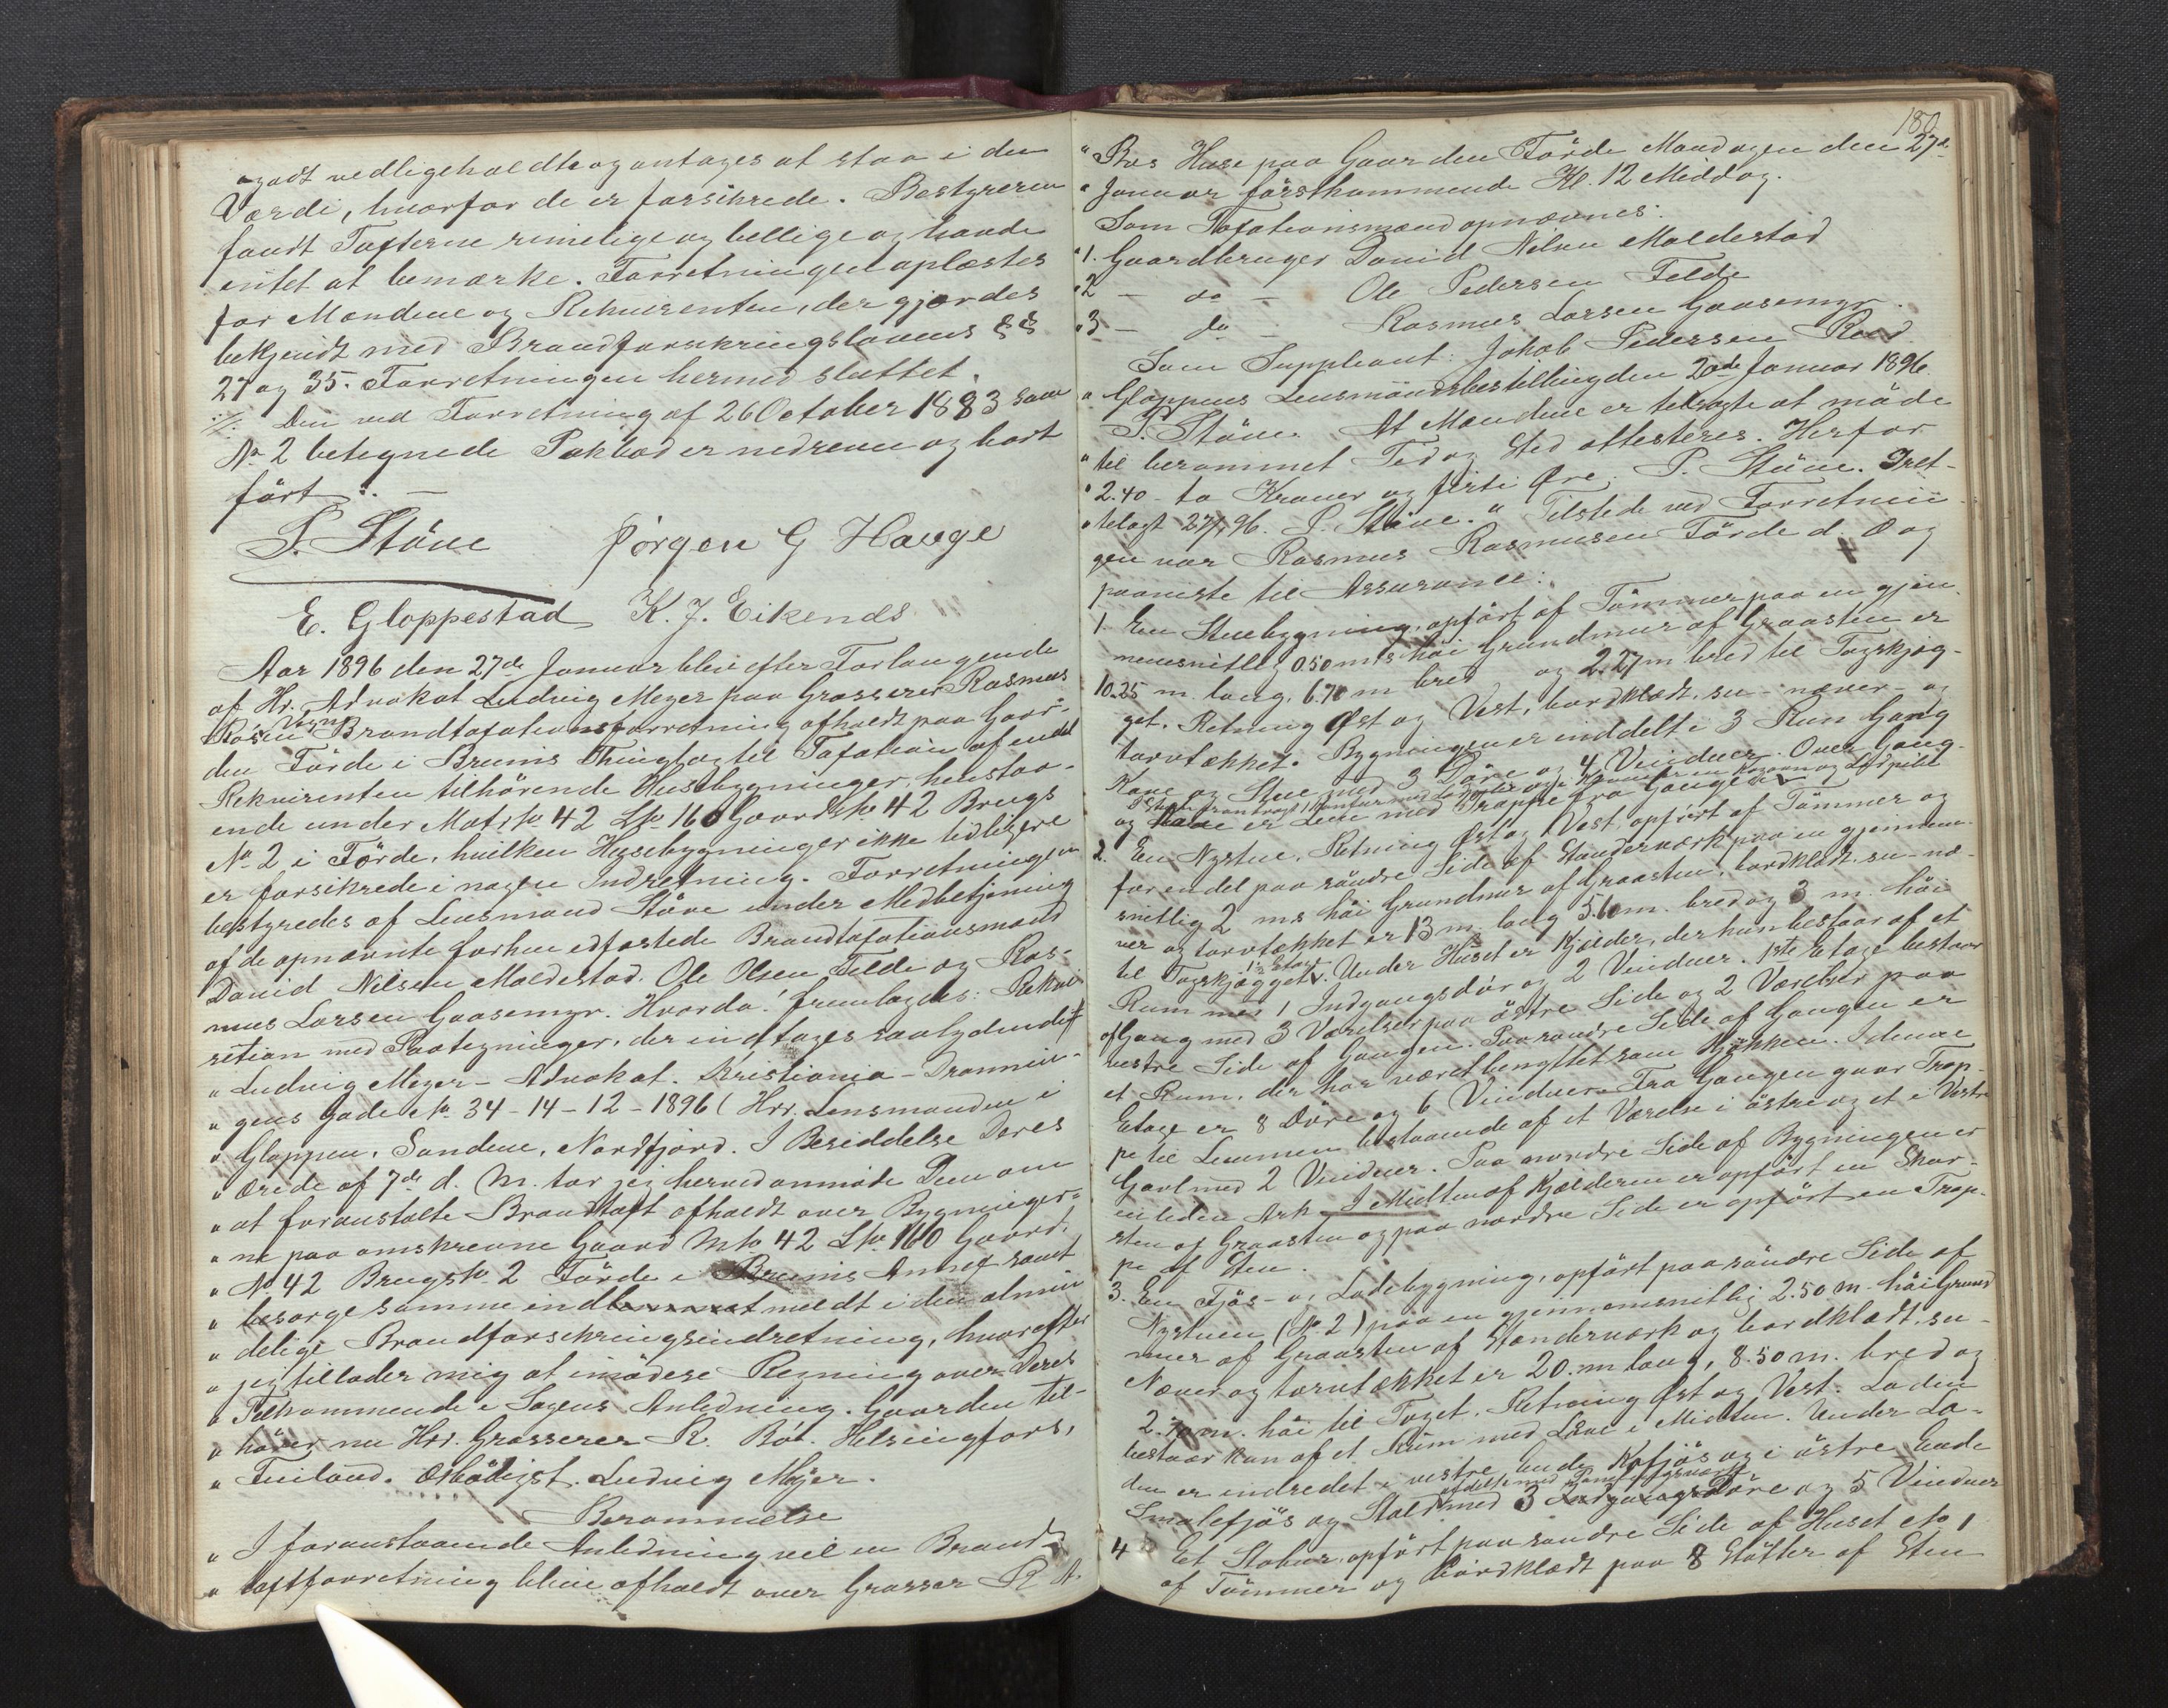 godt vedligeholdte og antages at staa i den
Værdi, hvorfor de er forsikrede. Bestyreren
fandt Taxterne rimelige og billige og havde
intet at bemærke. Forretningen oplæstes
for Mændene og Rekvirenten, der gjordes
bekjendt med Brandforsikringslovens §§
27 og 35. Forretningen hermed sluttet.
·/. Den ved Forretning af 26 October 1883 som
No 2 betegnede Pakbod er nedreven og bort
ført :. —
P. Støve Jørgen G Hauge
E. Gloppestad K. J. Eikenæs
Aar 1896 den 27de Januar blev efter Forlangende
af Hr. Advokat Ludvig Meyer paa Grosserer Rasmus
Bøs Vegne Brandtaxationsforretning afholdt paa Gaar-
den Førde i Breims Thinglag til Taxation af endel
Rekvirenten tilhørende Husebygninger, henstaa-
ende under Matr. No 42 Lno 160 Gaards No 42 Brugs
No 2 i Førde, hvilken Husebygninger ikke tidligere
er forsikrede i nogen Indretning. Forretningen
bestyredes af Lensmand Støve under Medbetjening
af de opnævnte forhen edfæstede Brandtaxationsmænd
David Nilsen Moldestad. Ole Olsen Felde og Ras-
mus Larsen Gaasemyr. Hvorda! fremlagdes: Rekvi-
sition med Paategninger, der indtages saalydende:
" Ludvig Meyer - Advokat. Kristiania - Dronnin-
" gens gade No 34 - 14 - 12 - 1896 ( Hrr. Lensmanden i
" Gloppen, Sandene, Nordfjord. I Besiddelse Deres
" ærede af 7de d. M. tør jeg herved anmode Dem om
" at foranstalte Brandtaxt afholdt over Bygninger-
" ne paa omskrevne Gaard Mno 42 Lno 160 Gaards
" No 42 Brugsno 2 Førde i Breims Annex samt
" besørge samme indmeldt i den almin
" delige Brandforsikringsindretning, hvorefter
" jeg tillader mig at imødese Regning over Deres
" Tilkommende i Sagens Anledning. Gaarden til-
" hører nu Hrr. Grosserer R. Bø. Helsingfors,
" Finland. Ærbødigst. Ludvig Meyer.
Berammelse
" I foranstaaende Anledning vil en Brand-
" taxtforretning blive afholdt over Grosser R A.
180
" Bøs Huse paa Gaarden Førde Mandagen den 27de
" Januar førstkommende Kl. 12 Middag.
Som Taxationsmænd opnævnes:
" 1. Gaardbruger David Nilsen Moldestad
" 2 — do — Ole Pedersen Felde
" 3 — do — Rasmus Larsen Gaasemyr.
Som Suppleant: Jakob Pedersen Reed.
" Gloppens Lensmandsbestilling den 20de Januar 1896.
P. Støve. At Mændene er tilsagte at møde
" til berammet Tid og Sted attesteres. Herfor
" 2.40 - to Kroner og firti Øre. P. Støve. Fret-
" telagt 27/1 96. P. Støve. " Tilstede ved Forretnin
gen var Rasmus Rasmusen Førde d. Æ og
paaviste til Assurance:
1. En Stuebygning, opført af Tømmer paa en gjen-
nemsnitlig 0.50 mtrs høi Grundmur af Graasten er
10.25 m. lang, 6.70 m bred og 2.27 m bred til Tagskjæg-
get. Retning Øst og Vest, bordklædt, su- næver- og
torvtækket. Bygningen er inddelt i 3 Rum Gang
Kove og Stue med 3 Døre og 4 Vinduer. Over Gang
og Kove er Lem med Trappe fra Gangen.
2. En Nystue, Retning Øst og Vest, opført af Tømmer og
for en del paa søndre Side af Standerværk paa en gjennem-
snitlig 2 m.s høi Grundmur af Graasten, bordklædt, su- næ-
ver og torvtækket er 13 m. lang 5.60 m. bred og 3 m. høi
til Tagskjægget. 1½ Etage. Under Huset er Kjelder, der kun bestaar af et
Rum med 1 Indgangsdør og 2 Vinduer. 1ste Etage bestaar
af Gang med 3 Værelser paa østre Side og 2 Værelser paa
vestre Side af Gangen. Paa søndre Side af Gangen er
et Rum, der har været benyttet som Kjøkken. I denne
Etage er 8 Døre og 6 Vinduer. Fra Gangen gaar Trap-
pe til Lemmen bestaaende af et Værelse i østre og et i Vestre
Gavl med 2 Vinduer. Paa nordre Side af Bygningen er
en liden Ark. I Midten af Kjælderen er opført en Skor-
sten af Graasten og paa nordre Side er opført en Trap-
pe af Sten.
3. En Fjøs- og Ladebygning, opført paa søndre Side af
Nystuen (No 2) paa en gjennemsnitlig 2.50 m. høi Grund
mur af Graasten af Standerværk og bordklædt, su-
Næver og torvtækket er 20. m lang, 8.50 m. bred og
2.70 m. høi til Taget. Retning Øst og Vest. Laden
bestaar kun af et Rum med Laave i Midten. Under La-
den er indredet i vestre Ende Kofjøs og i østre Ende
Smalefjøs og Stald med 3 Døre og 5 Vinduer
4 Et Stabur, opført paa søndre Side af Huset No 1
af Tømmer og bordklædt paa 8 Støtter af Sten